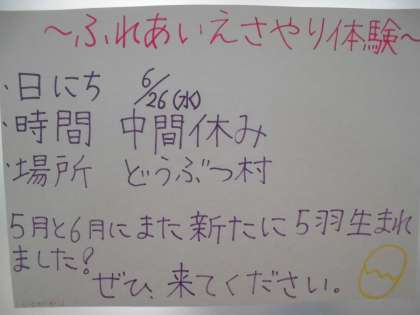 ～ふれあいえさやり体験～
・日にち 6/26(水)
・時間 中間休み
・場所 どうぶつ村
5月と6月にまた新たに5羽生まれ
ました!
ぜひ、来てください。